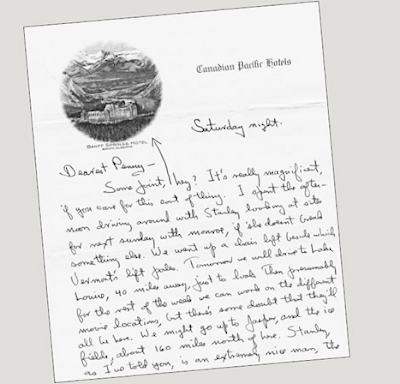 Canadian Pacific Hotels
BANFF SPRINGS HOTEL
Saturday night.
Dearest Penny—
Some joint, hey? It's really magnificent,
if you care for this sort of thing. I spent the after-
noon driving around with Stanley looking at sites
for next sunday with monroe, if she doesn't break
something else. We went up a chair lift beside which
Vermont's lift pales. Tomorrow we will drive to Lake
Louise, 40 miles away, just to look. Then presumably
for the rest of the week we can work on the different
movie locations, but there's some doubt that they'll
all be here. We might go up to Jasper, and the ice
fields, about 160 miles north of here. Stanley,
as I've told you, is an extremely nice man, the